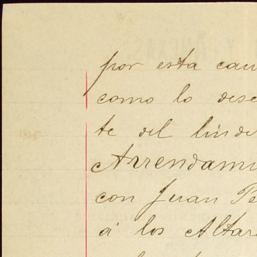 por esta cau
como lo dese
te del linde
Arrendami
con Juan Pe
á los Altar